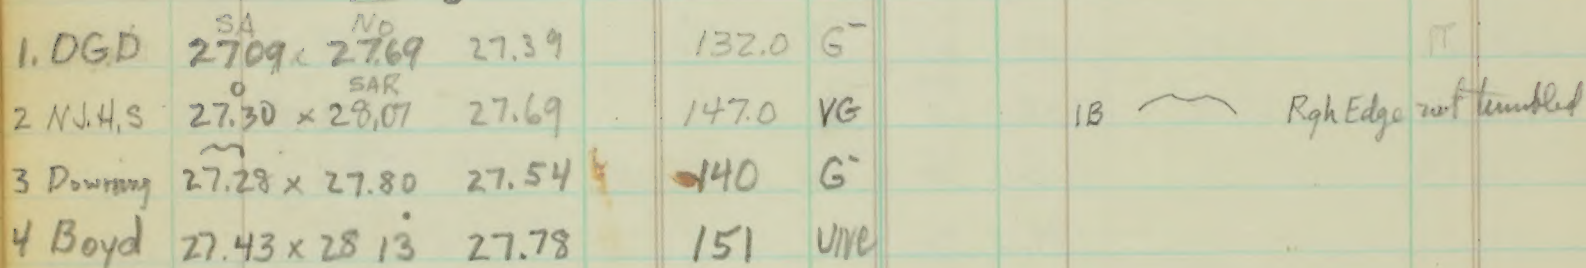 SA NO
1. OGD 27.09 x 27.69 27.39 132.0 G-
O SAR
2 N.J.H.S 27.30 x 28.07 27.69 147.0 VG 1B Rgh Edge not tumbled
3 Downing 27.28 x 27.80 27.54 140 G-
4 Boyd 27.43 x 28 13 27.78 151